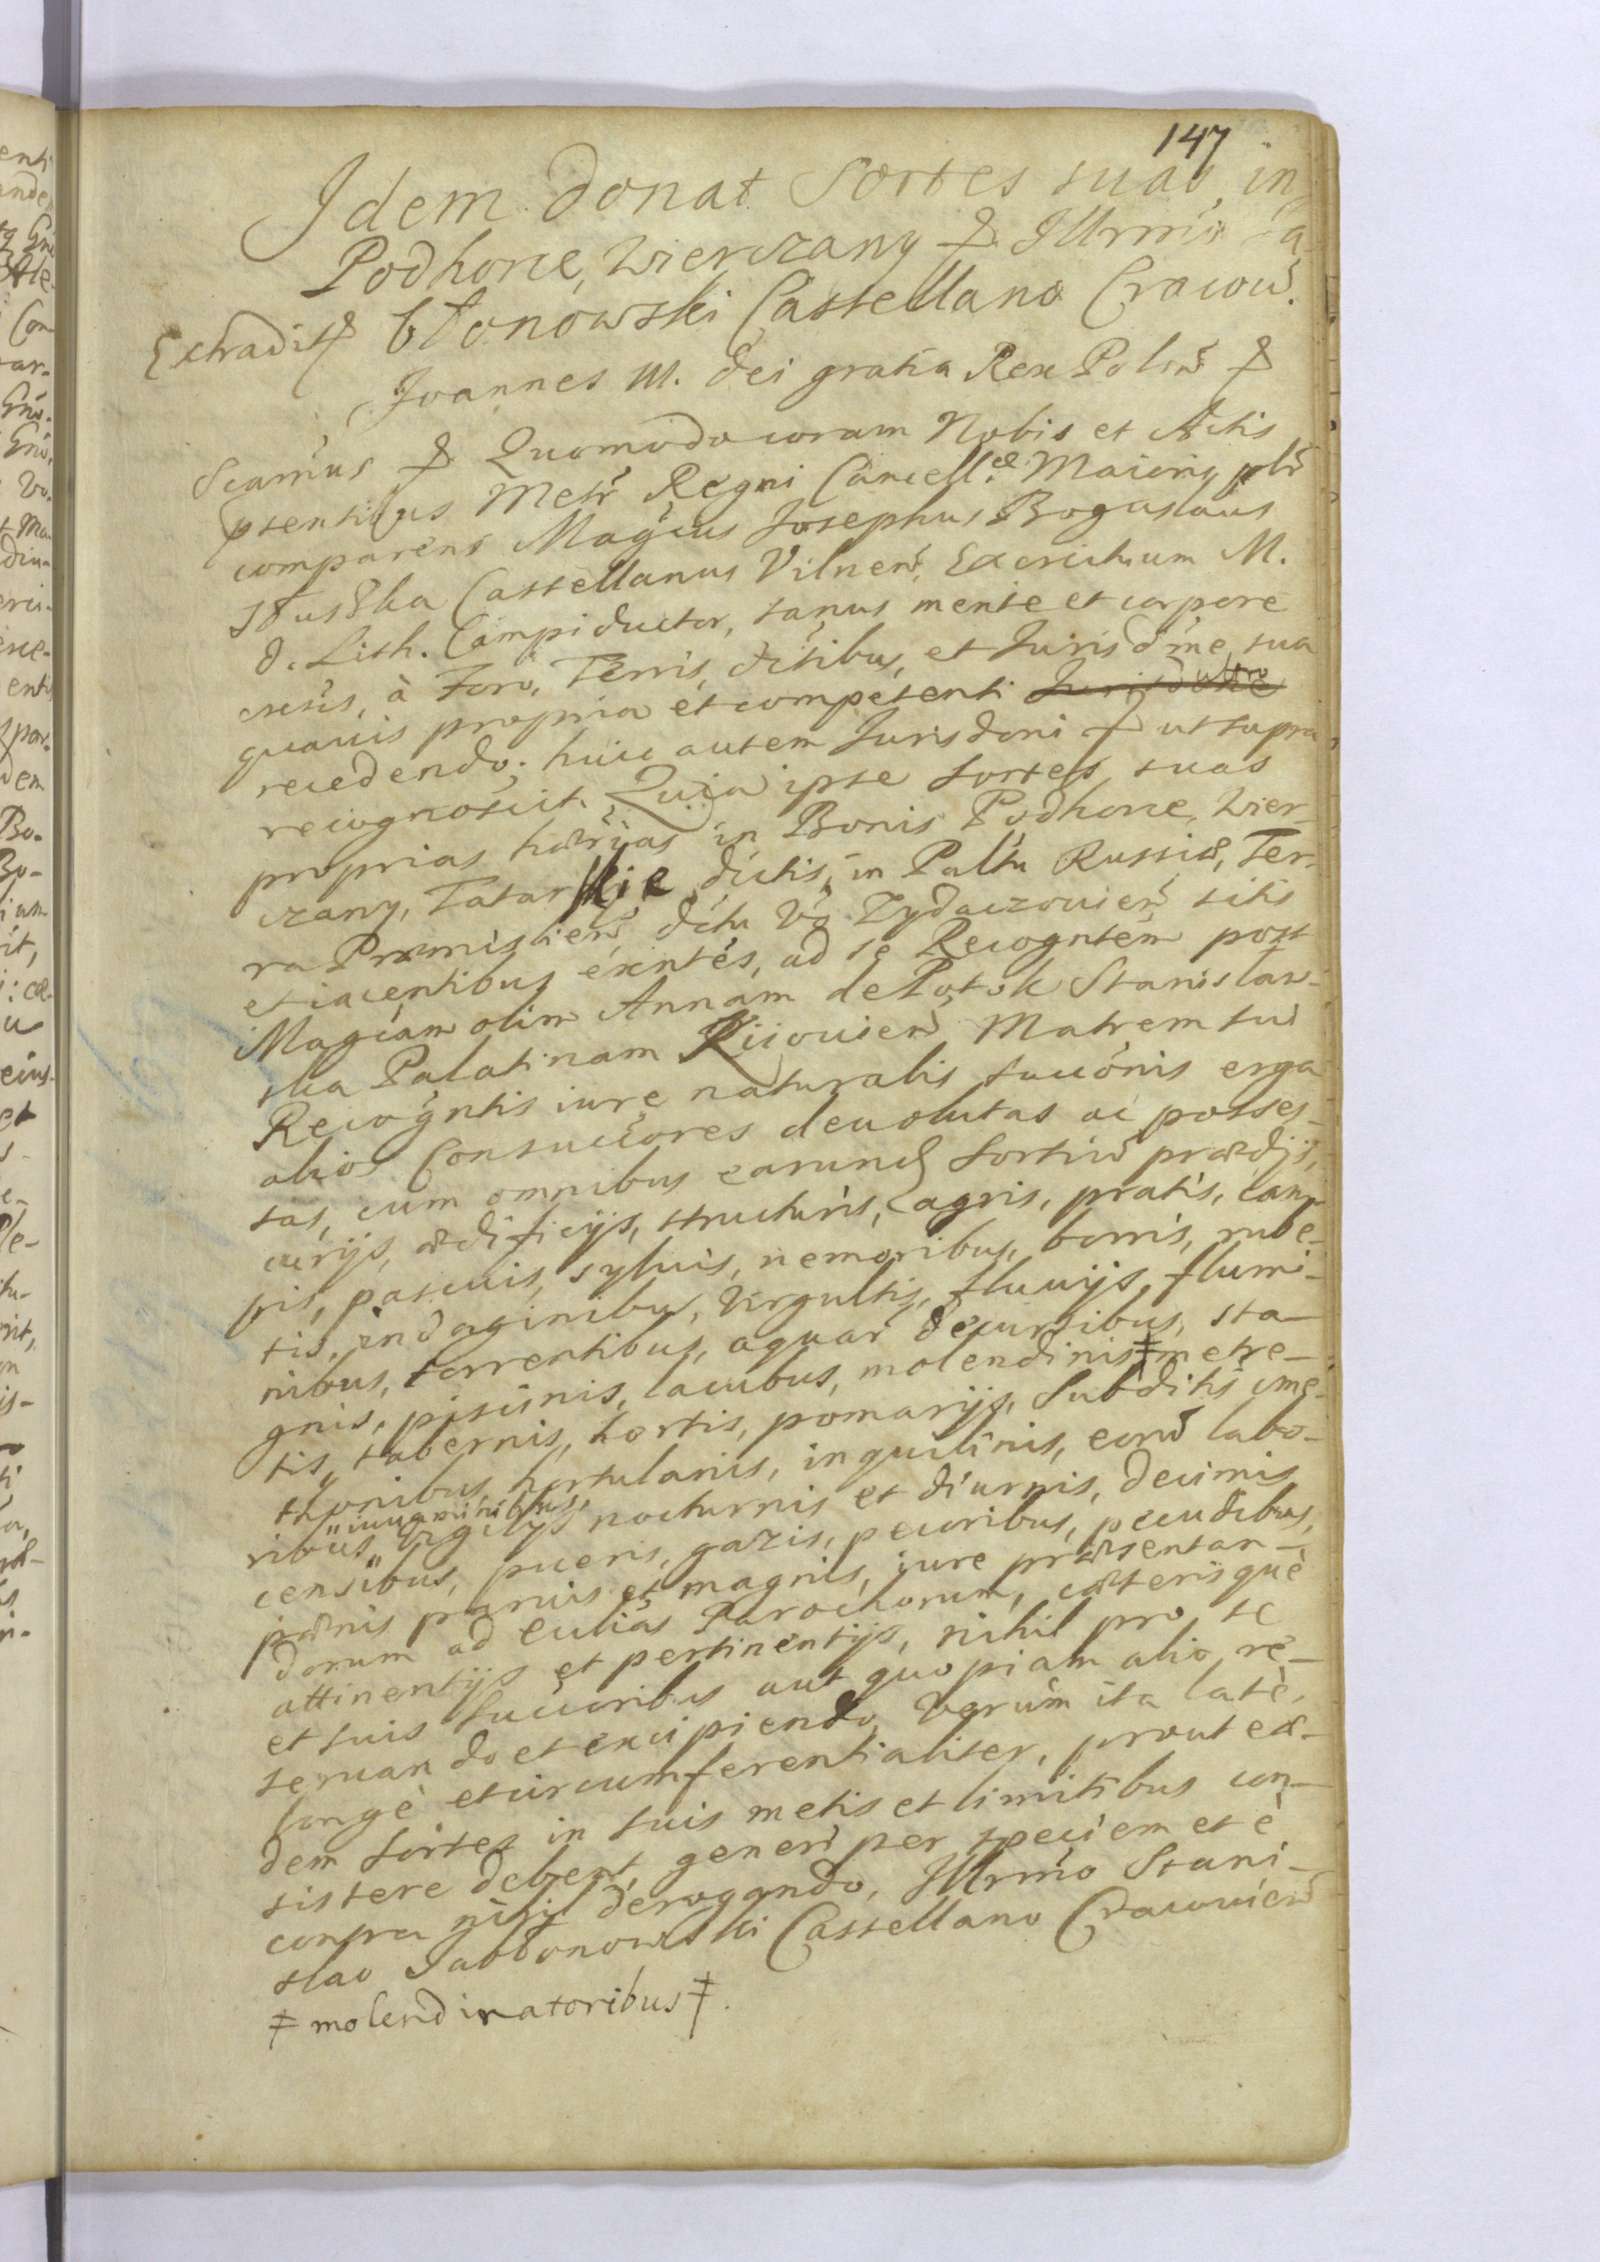 147
Idem donat Sortes suas in
Podhorce, Wierczany & Illrmo Ja-
Extradit & błonowski Castellano Cracov.
Joannes III. Dei gratia Rex Polon̄ &
Scamus & Quomodo coram Nobis et Actis
pṡentibus Metr̄ Regni Cancell.æ Maioris plr̄
comparens Magcus Josephus Bogusłaus
Słuszka Castellanus Vilnen̄, Exercituum M.
D. Lith. Campiductor, sanus mente et corpore
exeṅs, à Foro, Terris, dctibus, et Jurisdone sua
quavis propria et competenti Jurisdone ultro
recedendo; huic autem Jurisdoni & ut supra
recognovit. Quia ipse sortes suas
proprias hærijas in Bonis Podhorce, Wier-
czany, Tatarskie dictis, in Paltu Russiæ, Ter-
ra Præmislien̄ dctu Vo Zydaczovien̄ sitis
et iacentibus exinteṡ, ad se Recogntem post
Magcam olim Annam de Potok Stanisław-
ska Palatinam Kiiovien̄ Matrem sui
Recogntis iure naturalis succonis erga
alios Consuccores devolutas ac posses-
sas, cum omnibus earund Sortiū prædijs,
curijs, ædificijs, structuris, agris, pratis, cam-
pis, pascuis, sylvis, nemoribus, borris, rube-
tis, indaginibus, virgultis, fluvijs, flumi-
nibus, torrentibus, aquar̄ decursibus, sta-
gnis, piscinis, lacubus, molendinis ‡ metre-
tis, tabernis, hortis, pomarijs, Subditis cme-
thonibus, hortulanis, inquilinis, eorū labo-
ribus " iuvaminibus, vigilijs nocturnis et diurnis, decimis
censibus, pueris, gazis, pecoribus, pecudibus,
pænis parvis et magnis, iure præsentan-
dorum ad Eccliās Parochorum, cæterisque
attinentijs et pertinentijs, nihil pro se
et suis Succoribus aut quopiam alio re-
servando et excipiendo, Verum ita late,
longè et circumferentialiter, prout eæ-
dem Sortes in suis metis et limitibus con-
sistere debent, generi per speciem et è
contra nihil derogando, Illrmo Stani-
slao Jabłonowski Castellano Cracovien̄
‡ molendinatoribus ‡.